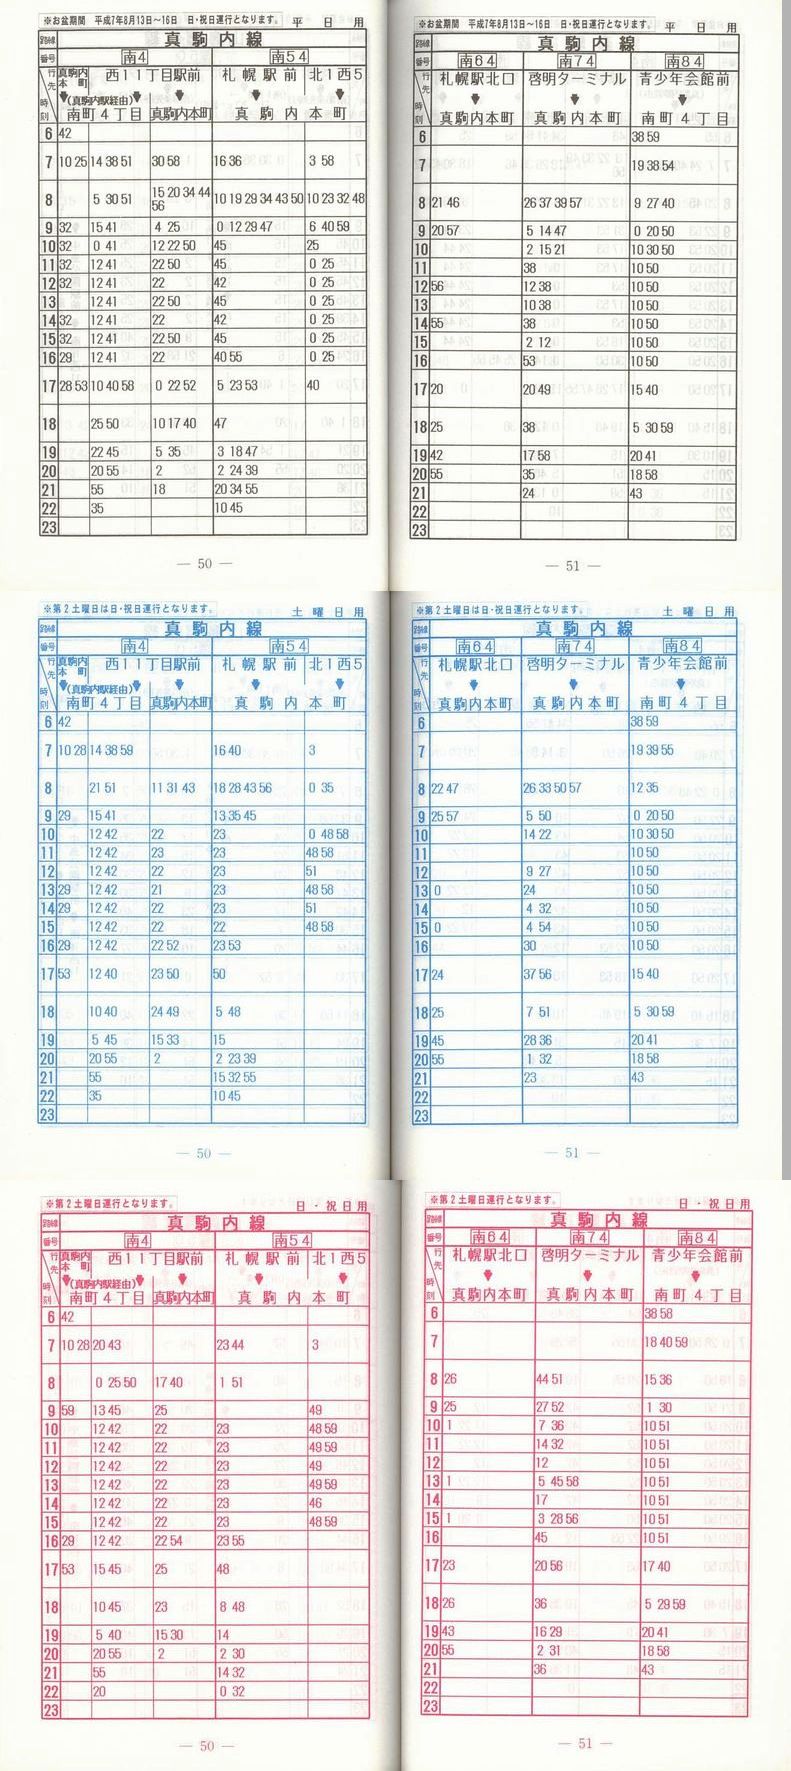 ※お盆期間 平成7年8月13日～16日 日・祝日運行となります。 平日用
路線 真駒内線
番号 南4 南54
行先 真駒内本町 西11丁目駅前 札幌駅前 北1西5
(真駒内駅経由)
時刻 南町4丁目 真駒内本町 真駒内本町
6 42
7 10 25 14 38 51 30 58 16 36 3 58
8 5 30 51 15 20 34 44 56 10 19 29 34 43 50 10 23 32 48
9 32 15 41 4 25 0 12 29 47 6 40 59
10 32 0 41 12 22 50 45 25
11 32 12 41 22 50 45 0 25
12 32 12 41 22 42 0 25
13 12 41 22 50 45 0 25
14 32 12 41 22 42 0 25
15 32 12 41 22 50 45 0 25
16 29 12 41 22 40 55 0 25
17 28 53 10 40 58 0 22 52 5 23 53 40
18 25 50 10 17 40 47
19 22 45 5 35 3 18 47
20 20 55 2 2 24 39
21 55 18 20 34 55
22 35 10 45
23
— 50 —
※お盆期間 平成7年8月13日～16日 日・祝日運行となります。 平日用
路線 真駒内線
番号 南64 南74 南84
行先 札幌駅北口 啓明ターミナル 青少年会館前
時刻 真駒内本町 真駒内本町 南町4丁目
6 38 59
7 19 38 54
8 21 46 26 37 39 57 9 27 40
9 20 57 5 14 47 0 20 50
10 2 15 21 10 30 50
11 38 10 50
12 56 12 38 10 50
13 10 38 10 50
14 55 38 10 50
15 2 12 10 50
16 53 10 50
17 20 20 49 15 40
18 25 38 5 30 59
19 42 17 58 20 41
20 55 35 18 58
21 24 43
22
23
— 51 —
※第2土曜日は日・祝日運行となります。 土曜日用
路線 真駒内線
番号 南4 南54
行先 真駒内本町 西11丁目駅前 札幌駅前 北1西5
(真駒内駅経由)
時刻 南町4丁目 真駒内本町 真駒内本町
6 42
7 10 28 14 38 59 16 40 3
8 21 51 11 31 43 18 28 43 56 0 35
9 29 15 41 13 35 45
10 12 42 22 23 0 48 58
11 12 42 23 23 48 58
12 12 42 22 23 51
13 29 12 42 21 23 48 58
14 29 12 42 22 23 51
15 12 42 22 22 48 58
16 29 12 42 22 52 23 53
17 53 12 40 23 50 50
18 10 40 24 49 5 48
19 5 45 15 33 15
20 20 55 2 2 23 39
21 55 15 32 55
22 35 10 45
23
— 50 —
※第2土曜日は日・祝日運行となります。 土曜日用
路線 真駒内線
番号 南64 南74 南84
行先 札幌駅北口 啓明ターミナル 青少年会館前
時刻 真駒内本町 真駒内本町 南町4丁目
6 38 59
7 19 39 55
8 22 47 26 33 50 57 12 35
9 25 57 5 50 0 20 50
10 14 22 10 30 50
11 10 50
12 9 27 10 50
13 0 24 10 50
14 4 32 10 50
15 0 4 54 10 50
16 30 10 50
17 24 37 56 15 40
18 25 7 51 5 30 59
19 45 28 36 20 41
20 55 1 32 18 58
21 23 43
22
23
— 51 —
※第2土曜日運行となります。 日・祝日用
路線 真駒内線
番号 南4 南54
行先 真駒内本町 西11丁目駅前 札幌駅前 北1西5
(真駒内駅経由)
時刻 南町4丁目 真駒内本町 真駒内本町
6 42
7 10 28 20 43 23 44 3
8 0 25 50 17 40 1 51
9 59 13 45 25 49
10 12 42 22 23 48 59
11 12 42 22 23 49 59
12 12 42 22 23 49
13 12 42 22 23 49 59
14 12 42 22 23 46
15 12 42 22 23 48 59
16 29 12 42 22 54 23 55
17 53 15 45 25 48
18 10 45 23 8 48
19 5 40 15 30 14
20 20 55 2 2 30
21 55 14 32
22 20 0 32
23
— 50 —
※第2土曜日運行となります。 日・祝日用
路線 真駒内線
番号 南64 南74 南84
行先 札幌駅北口 啓明ターミナル 青少年会館前
時刻 真駒内本町 真駒内本町 南町4丁目
6 38 58
7 18 40 59
8 26 44 51 15 36
9 25 27 52 1 30
10 1 7 36 10 51
11 14 32 10 51
12 12 10 51
13 1 5 45 58 10 51
14 17 10 51
15 1 3 28 56 10 51
16 45 10 51
17 23 20 56 17 40
18 26 36 5 29 59
19 43 16 29 20 41
20 55 2 31 18 58
21 36 43
22
23
— 51 —